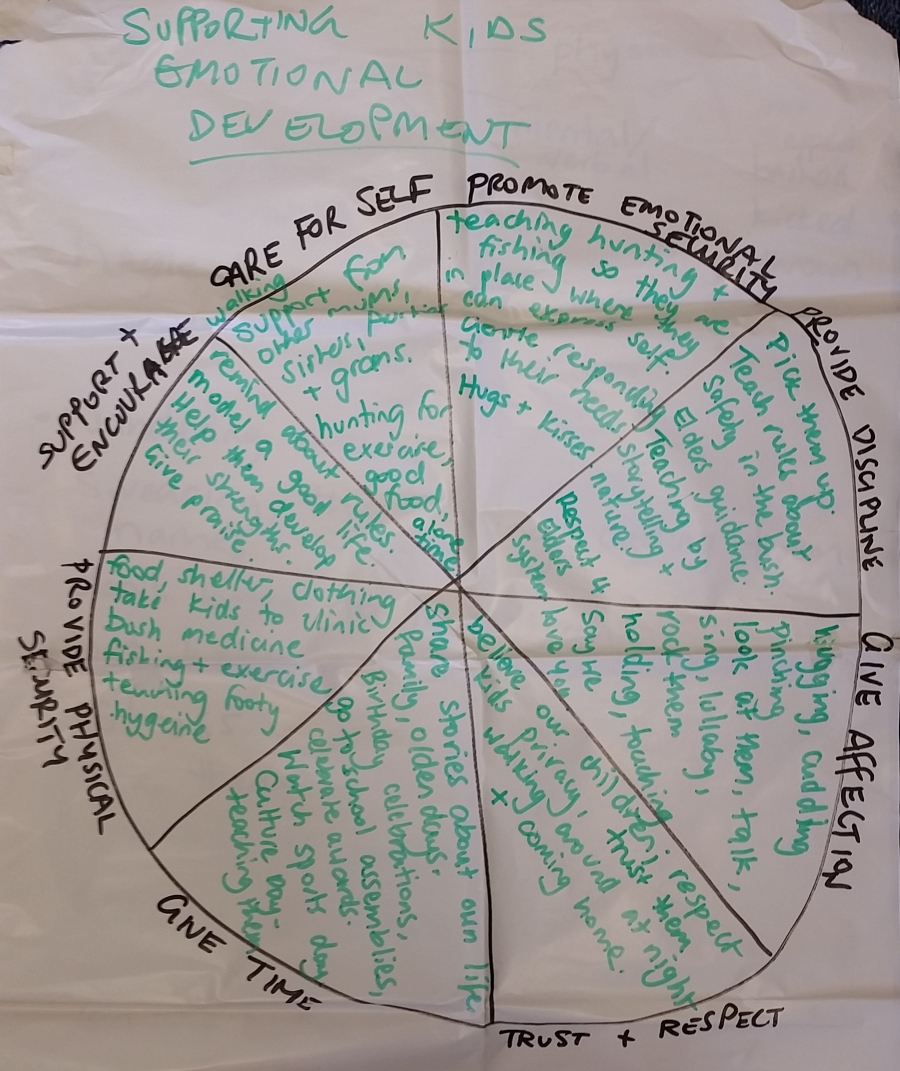 SUPPORTING KIDS
EMOTIONAL
DEVELOPMENT
PROMOTE EMOTIONAL
SECURITY
teaching hunting +
fishing so they are
in place where they
can express self.
Gentle responding
to their needs
Hugs + kisses
PROVIDE DISCIPLINE
Pick them up.
Teach rules about
safety in the bush.
Elders guidance.
Teaching by
storytelling +
nature.
Respect 4
Elders
System
GIVE AFFECTION
hugging, cuddling
pinching
look at them, talk,
sing, lullaby,
rock them
holding, touching
say we
love you
TRUST + RESPECT
believe our children, respect
kids privacy, trust them
walking around at night
+ coming home.
GIVE TIME
Share stories about own life
family, olden days.
Birthday celebrations,
go to school assemblies,
celebrate awards.
Watch sports day
Culture day -
teaching them
PROVIDE PHYSICAL
SEMRITY
food, shelter, clothing
take kids to clinic
bush medicine
fishing + exercise
footy
hygeine
SUPPORT +
ENCOURAGE
remind about rules.
model a good life.
Help them develop
their strengths.
Give praise.
CARE FOR SELF
walking
support from
other mums,
sisters,
+ grans.
hunting for
exercise,
good
food,
alone
time